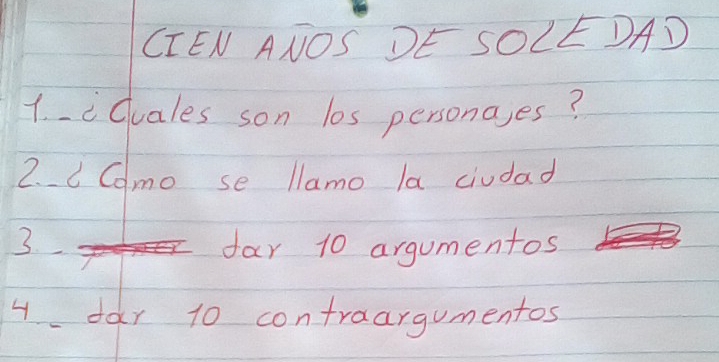 CIEN AÑOS DE SOLEDAD
1.-¿Cuales son los personajes?
2.-¿Como se llamo la ciudad
3- dar 10 argumentos
4- dar 10 contraargumentos